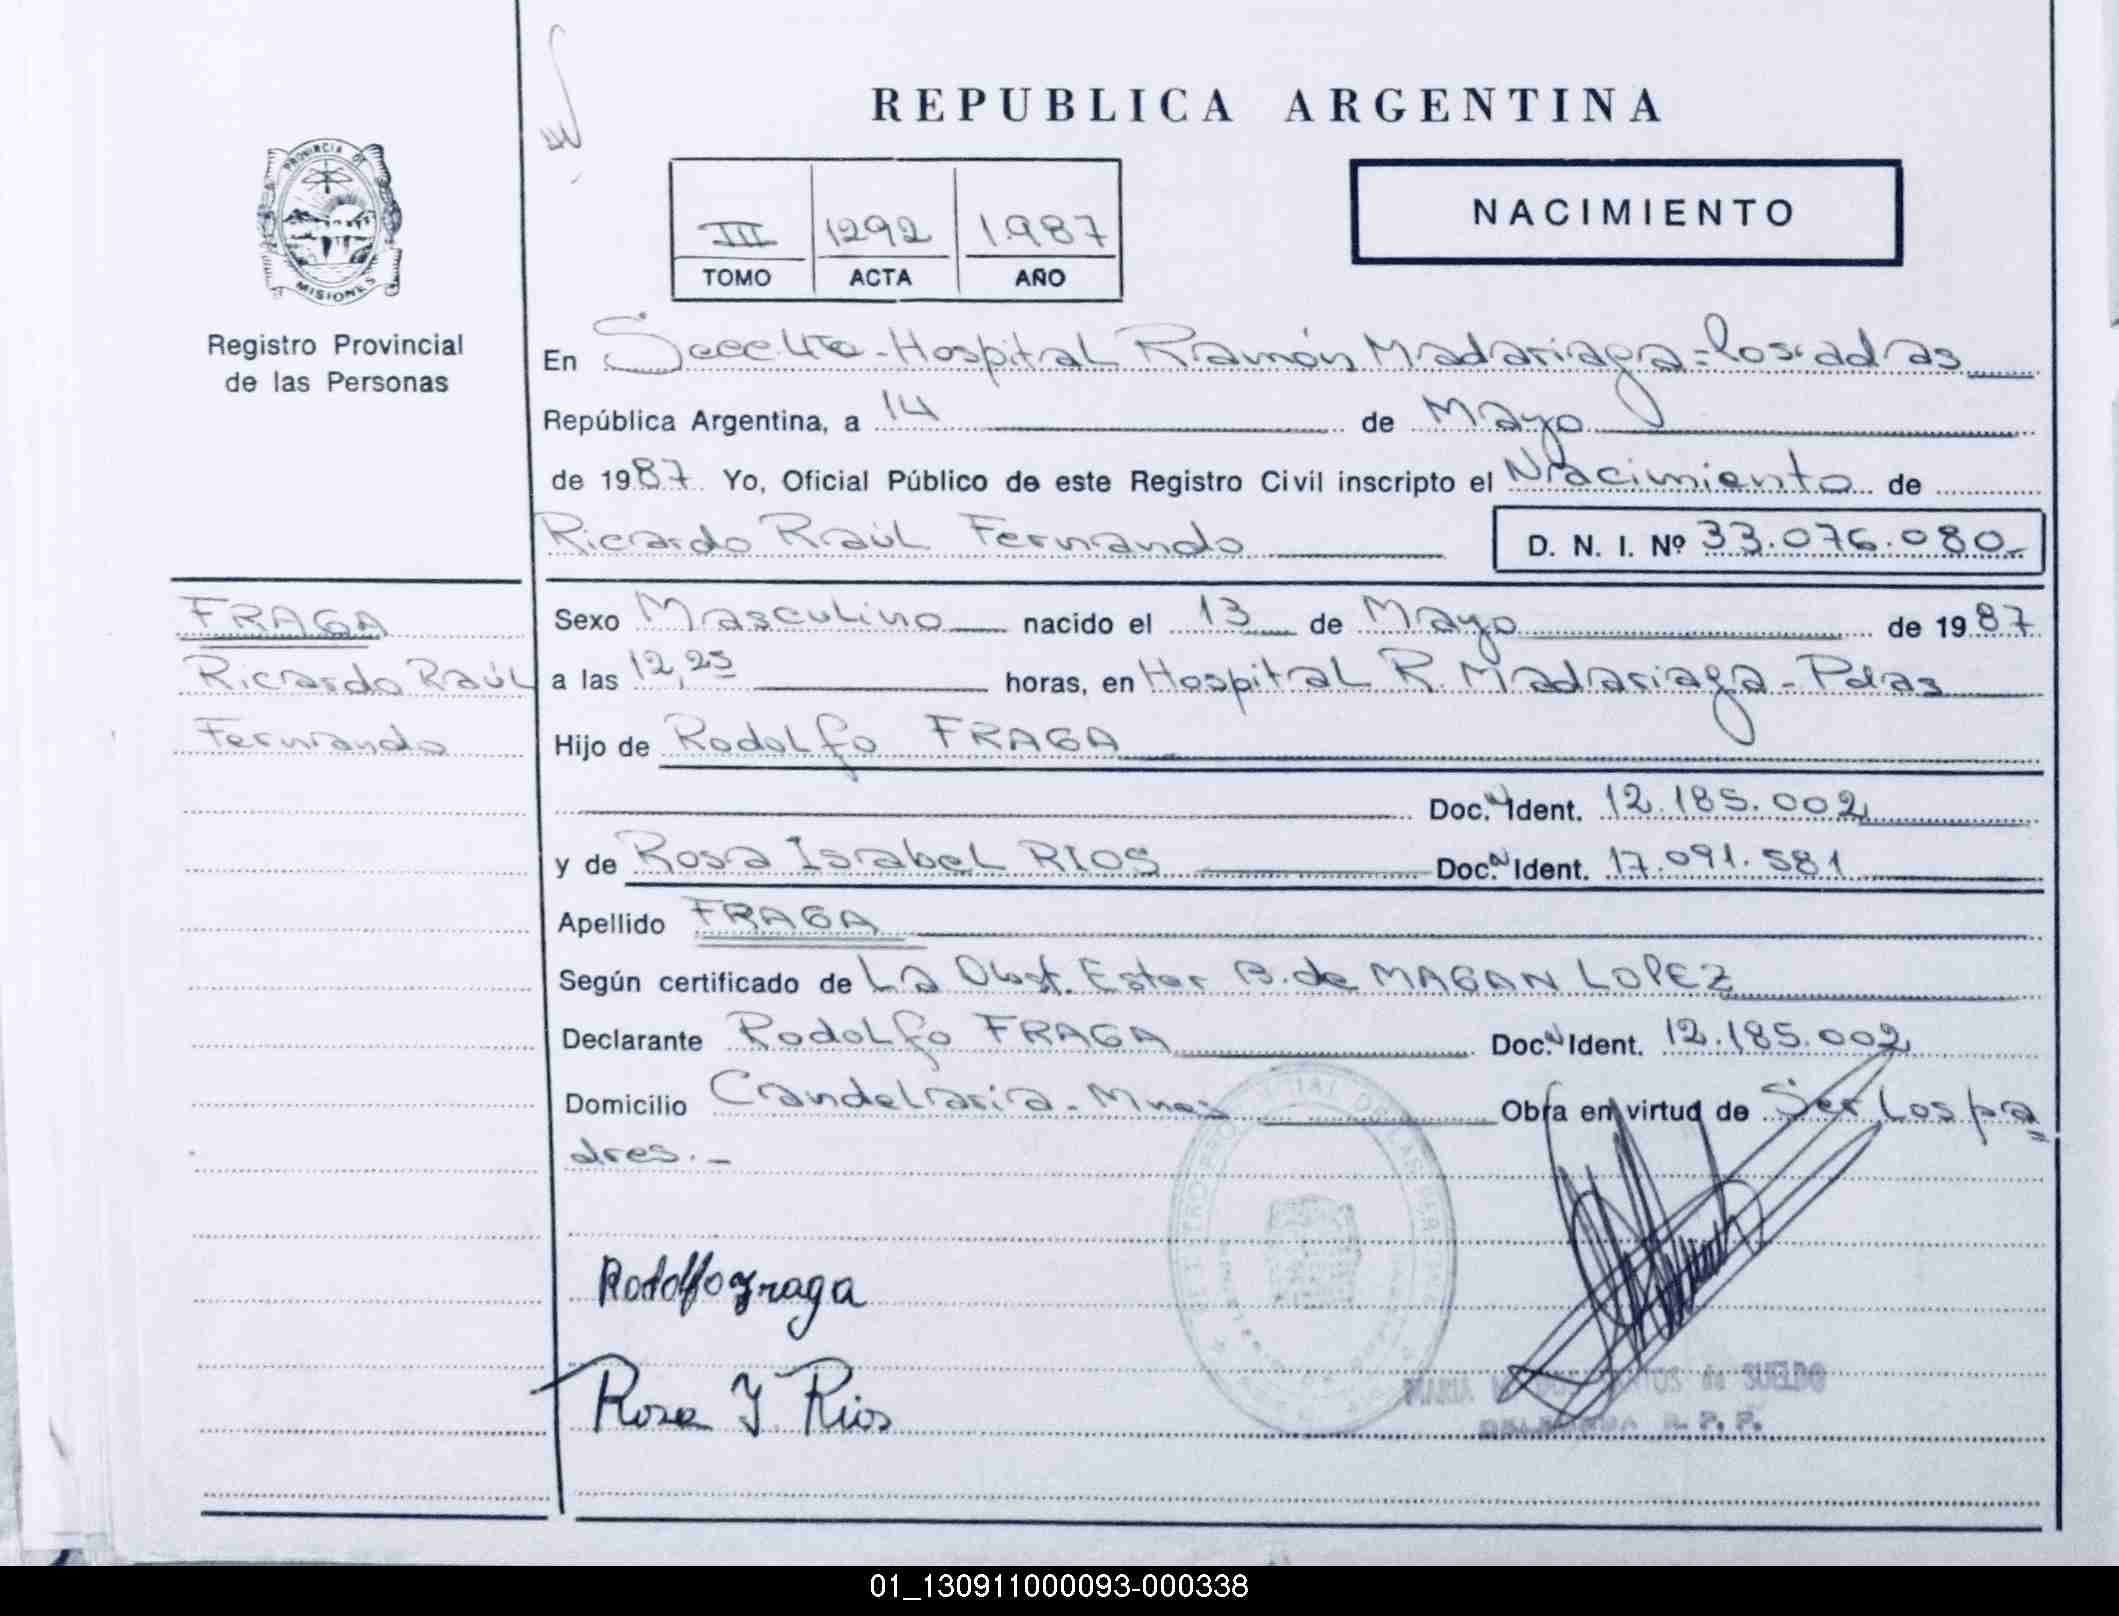 REPUBLICA ARGENTINA
NACIMIENTO
III 1292 1.987
TOMO ACTA AÑO
PROVINCIA DE
MISIONES
Registro Provincial
de las Personas
En Secc. 4ta - Hospital Ramón Madariaga = Posadas
República Argentina, a 14 de Mayo
de 1987 Yo, Oficial Público de este Registro Civil inscripto el Nacimiento de
Ricardo Raúl Fernando D. N. I. Nº 33.076.080-
FRAGA
Ricardo Raúl
Fernando
Sexo Masculino nacido el 13 de Mayo de 1987
a las 12,25 horas, en Hospital R. Madariaga - Pdas
Hijo de Rodolfo FRAGA
Doc. N Ident. 12.185.002
y de Rosa Isabel RIOS Doc. N Ident. 17.091.581
Apellido FRAGA
Según certificado de La Obst. Ester B. de MAGAN LOPEZ
Declarante Rodolfo FRAGA Doc. N Ident. 12.185.002
Domicilio Candelaria - Mnes Obra en virtud de Ser los pa=
dres. -
Rodolfo Fraga
Rosa I. Rios
R. P. P.
01_130911000093-000338